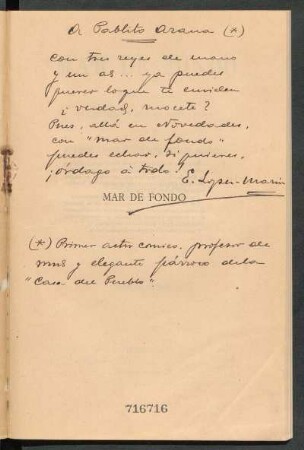 A Pablito Arana (*)
Con tres reyes de mano
y un as... ya puedes
querer lo que te enviden
¿verdad, mocete?
Pues, allá en Novedades,
con "Mar de fondo"
puedes echar, si quieres,
¡órdago á todo!
E. López-Marín
MAR DE FONDO
(*) Primer actor cómico, profesor de
mus y elegante párroco de la
"Casa del Pueblo".
716716